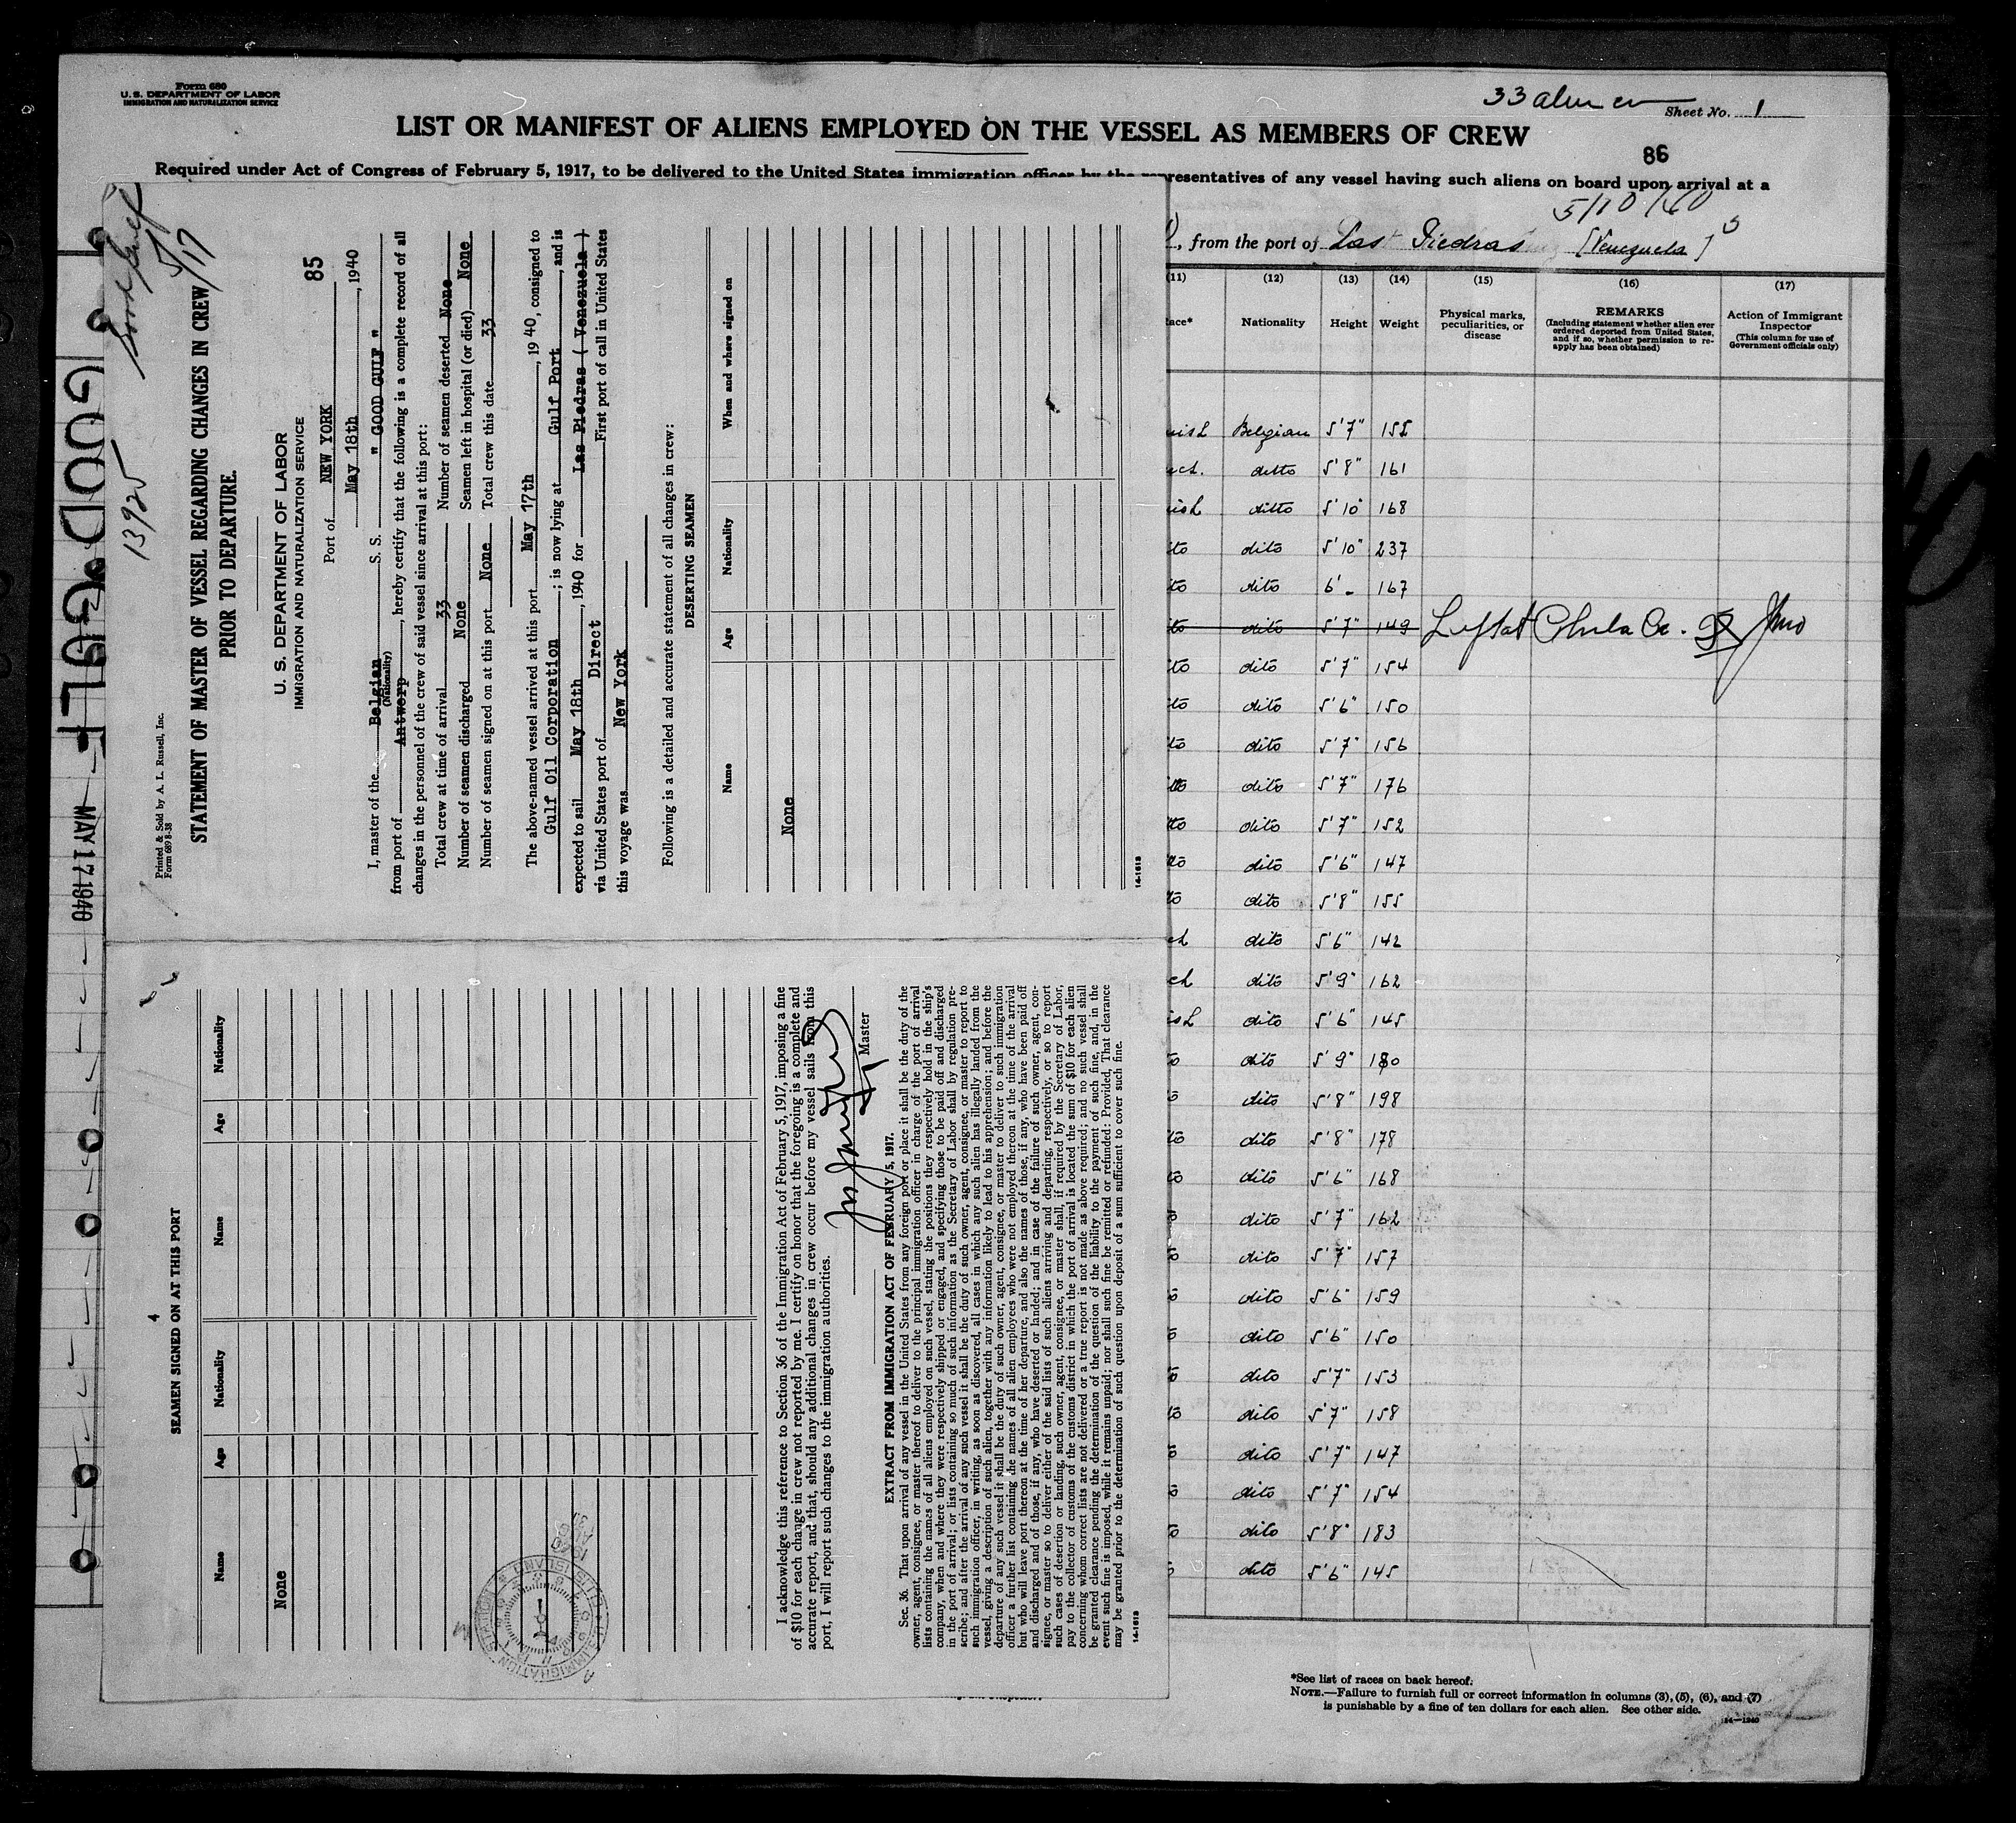 Form 680
U. S. DEPARTMENT OF LABOR
IMMIGRATION AND NATURALIZATION SERVICE
33
Sheet No. 1
LIST OR MANIFEST OF ALIENS EMPLOYED ON THE VESSEL AS MEMBERS OF CREW
86
Required under Act of Congress of February 5, 1917, to be delivered to the United States immigration officer by the representatives of any vessel having such aliens on board upon arrival at a
5/10/40
, from the port of Las Piedras [Venezuela]
(11) (12) (13) (14) (15) (16) (17)
Nationality Height Weight Physical marks, peculiarities, or disease
REMARKS
(Including statement whether alien ever ordered deported from United States, and if so, whether permission to re-apply has been obtained)
Action of Immigrant Inspector
(This column for use of Government officials only)
Belgian 5'7" 155
ditto 5'8" 161
ditto 5'10 168
dito 5'10" 237
dito 6'- 167
dito 5'7" 149 Left at
dito 5'7" 154
dito 5'6" 150
dito 5'7" 156
dito 5'7" 176
dito 5'7" 152
dito 5'6" 147
dito 5'8" 155
dito 5'6" 142
dito 5'9" 162
dito 5'6" 145
dito 5'9" 180
dito 5'8" 198
dito 5'8" 178
dito 5'6" 168
dito 5'7" 162
dito 5'7" 157
dito 5'6" 159
dito 5'6" 150
dito 5'7" 153
dito 5'7" 158
dito 5'7" 147
dito 5'7" 154
dito 5'8" 183
dito 5'6" 145
*See list of races on back hereof.
NOTE.—Failure to furnish full or correct information in columns (3), (5), (6), and (7)
is punishable by a fine of ten dollars for each alien. See other side.
14—1240
GOOD GULF
MAY 17 1940
Good Gulf
5/17
13925
Printed & Sold by A. L. Russell, Inc.
Form 689 8-38
STATEMENT OF MASTER OF VESSEL REGARDING CHANGES IN CREW
PRIOR TO DEPARTURE.
85
U. S. DEPARTMENT OF LABOR
IMMIGRATION AND NATURALIZATION SERVICE
Port of NEW YORK
May 18th, 1940
I, master of the Belgian S. S. " GOOD GULF "
(Nationality)
from port of Antwerp, hereby certify that the following is a complete record of all
changes in the personnel of the crew of said vessel since arrival at this port:
Total crew at time of arrival 33 Number of seamen deserted None
Number of seamen discharged None Seamen left in hospital (or died) None
Number of seamen signed on at this port None Total crew this date 33
The above-named vessel arrived at this port May 17th, 1940, consigned to
Gulf Oil Corporation; is now lying at Gulf Port, and is
expected to sail May 18th, 1940 for Las Piedras ( Venezuela )
via United States port of Direct First port of call in United States
this voyage was New York
Following is a detailed and accurate statement of all changes in crew:
DESERTING SEAMEN
Name Age Nationality When and where signed on
None
14-1618
4
SEAMEN SIGNED ON AT THIS PORT
Name Age Nationality Name Age Nationality
None
I acknowledge this reference to Section 36 of the Immigration Act of February 5, 1917, imposing a fine
of $10 for each change in crew not reported by me. I certify on honor that the foregoing is a complete and
accurate report, and that, should any additional changes in crew occur before my vessel sails from this
port, I will report such changes to the immigration authorities.
Master
EXTRACT FROM IMMIGRATION ACT OF FEBRUARY 5, 1917.
Sec. 36. That upon arrival of any vessel in the United States from any foreign port or place it shall be the duty of the
owner, agent, consignee, or master thereof to deliver to the principal immigration officer in charge of the port of arrival
lists containing the names of all aliens employed on such vessel, stating the positions they respectively hold in the ship's
company, when and where they were respectively shipped or engaged, and specifying those to be paid off and discharged
in the port of arrival; or lists containing so much of such information as the Secretary of Labor shall by regulation pre-
scribe; and after the arrival of any such vessel it shall be the duty of such owner, agent, consignee, or master to report to
such immigration officer, in writing, as soon as discovered, all cases in which any such alien has illegally landed from the
vessel, giving a description of such alien, together with any information likely to lead to his apprehension; and before the
departure of any such vessel it shall be the duty of such owner, agent, consignee, or master to deliver to such immigration
officer a further list containing the names of all alien employees who were not employed thereon at the time of the arrival
but who will leave port thereon at the time of her departure, and also the names of those, if any, who have been paid off
and discharged and of those, if any, who have deserted or landed; and in case of the failure of such owner, agent, con-
signee, or master so to deliver either of the said lists of such aliens arriving and departing, respectively, or so to report
such cases of desertion or landing, such owner, agent, consignee, or master shall, if required by the Secretary of Labor,
pay to the collector of customs of the customs district in which the port of arrival is located the sum of $10 for each alien
concerning whom correct lists are not delivered or a true report is not made as above required; and no such vessel shall
be granted clearance pending the determination of the question of the liability to the payment of such fine, and, in the
event such fine is imposed, while it remains unpaid; nor shall such fine be remitted or refunded: Provided, That clearance
may be granted prior to the determination of such question upon deposit of a sum sufficient to cover such fine.
14-1618